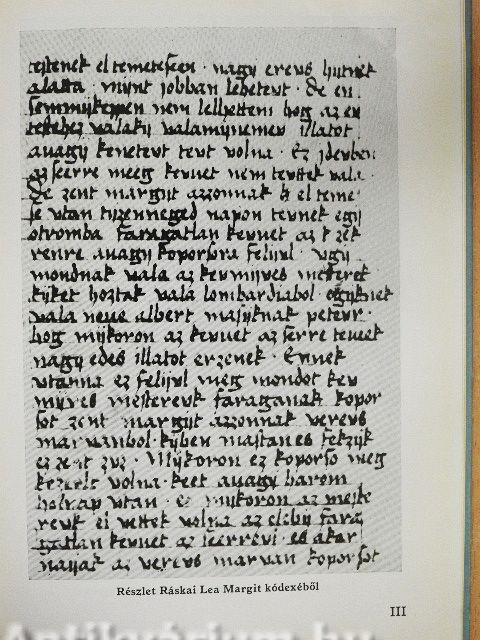 teſtenek el temeteſeen · nagy erevs hyitnek
alatta · mynt jobban lehetevt · De en
ſemmyķeppen nem lelhettem hog az en
teſtehez valaky valamynemev illatot
auagy kenetevt tevt volna · Ez ydevben
az ſeerre meeg kevuet nem tevttek vala ·
De zent margyt azzonnak el teme
ſe vtan tyzenneged napon tevnek egy
otromba faragatlan kevuet az
venre auagy koporſora felyvl · vgy
mondnak vala az kevmyves meſterek
kyket hoztak vala lombardiabol
vala neue albert maſyknak petevr ·
hog mykoron az kevuet az ſerre teueek
nagy edes illatot erzenek · Ennek
vtanna ez felyvl meg mondot kev
myves meſterevk faraganak kopor
ſot zent margyt azzonnak verevs
marvanbol kyben maſtan es fekzyk
ez zent zvz · Mykoron ez koporſo meg
volna · keet auagy harom
holnap vtan · Es mykoron az meſte
revk el vettek volna az elebi fara
gatlan kevuet az ſeerrevl · es akar
nayak az verevs marvan koporſot
Részlet Ráskai Lea Margit kódexéből
III
Antikvárium.hu